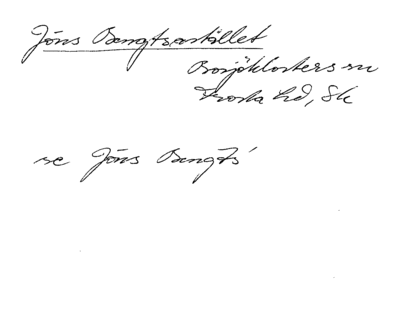 Jöns Bengtsastället
Bosjöklosters sn
Frosta hd, Sk
se Jöns Bengts'